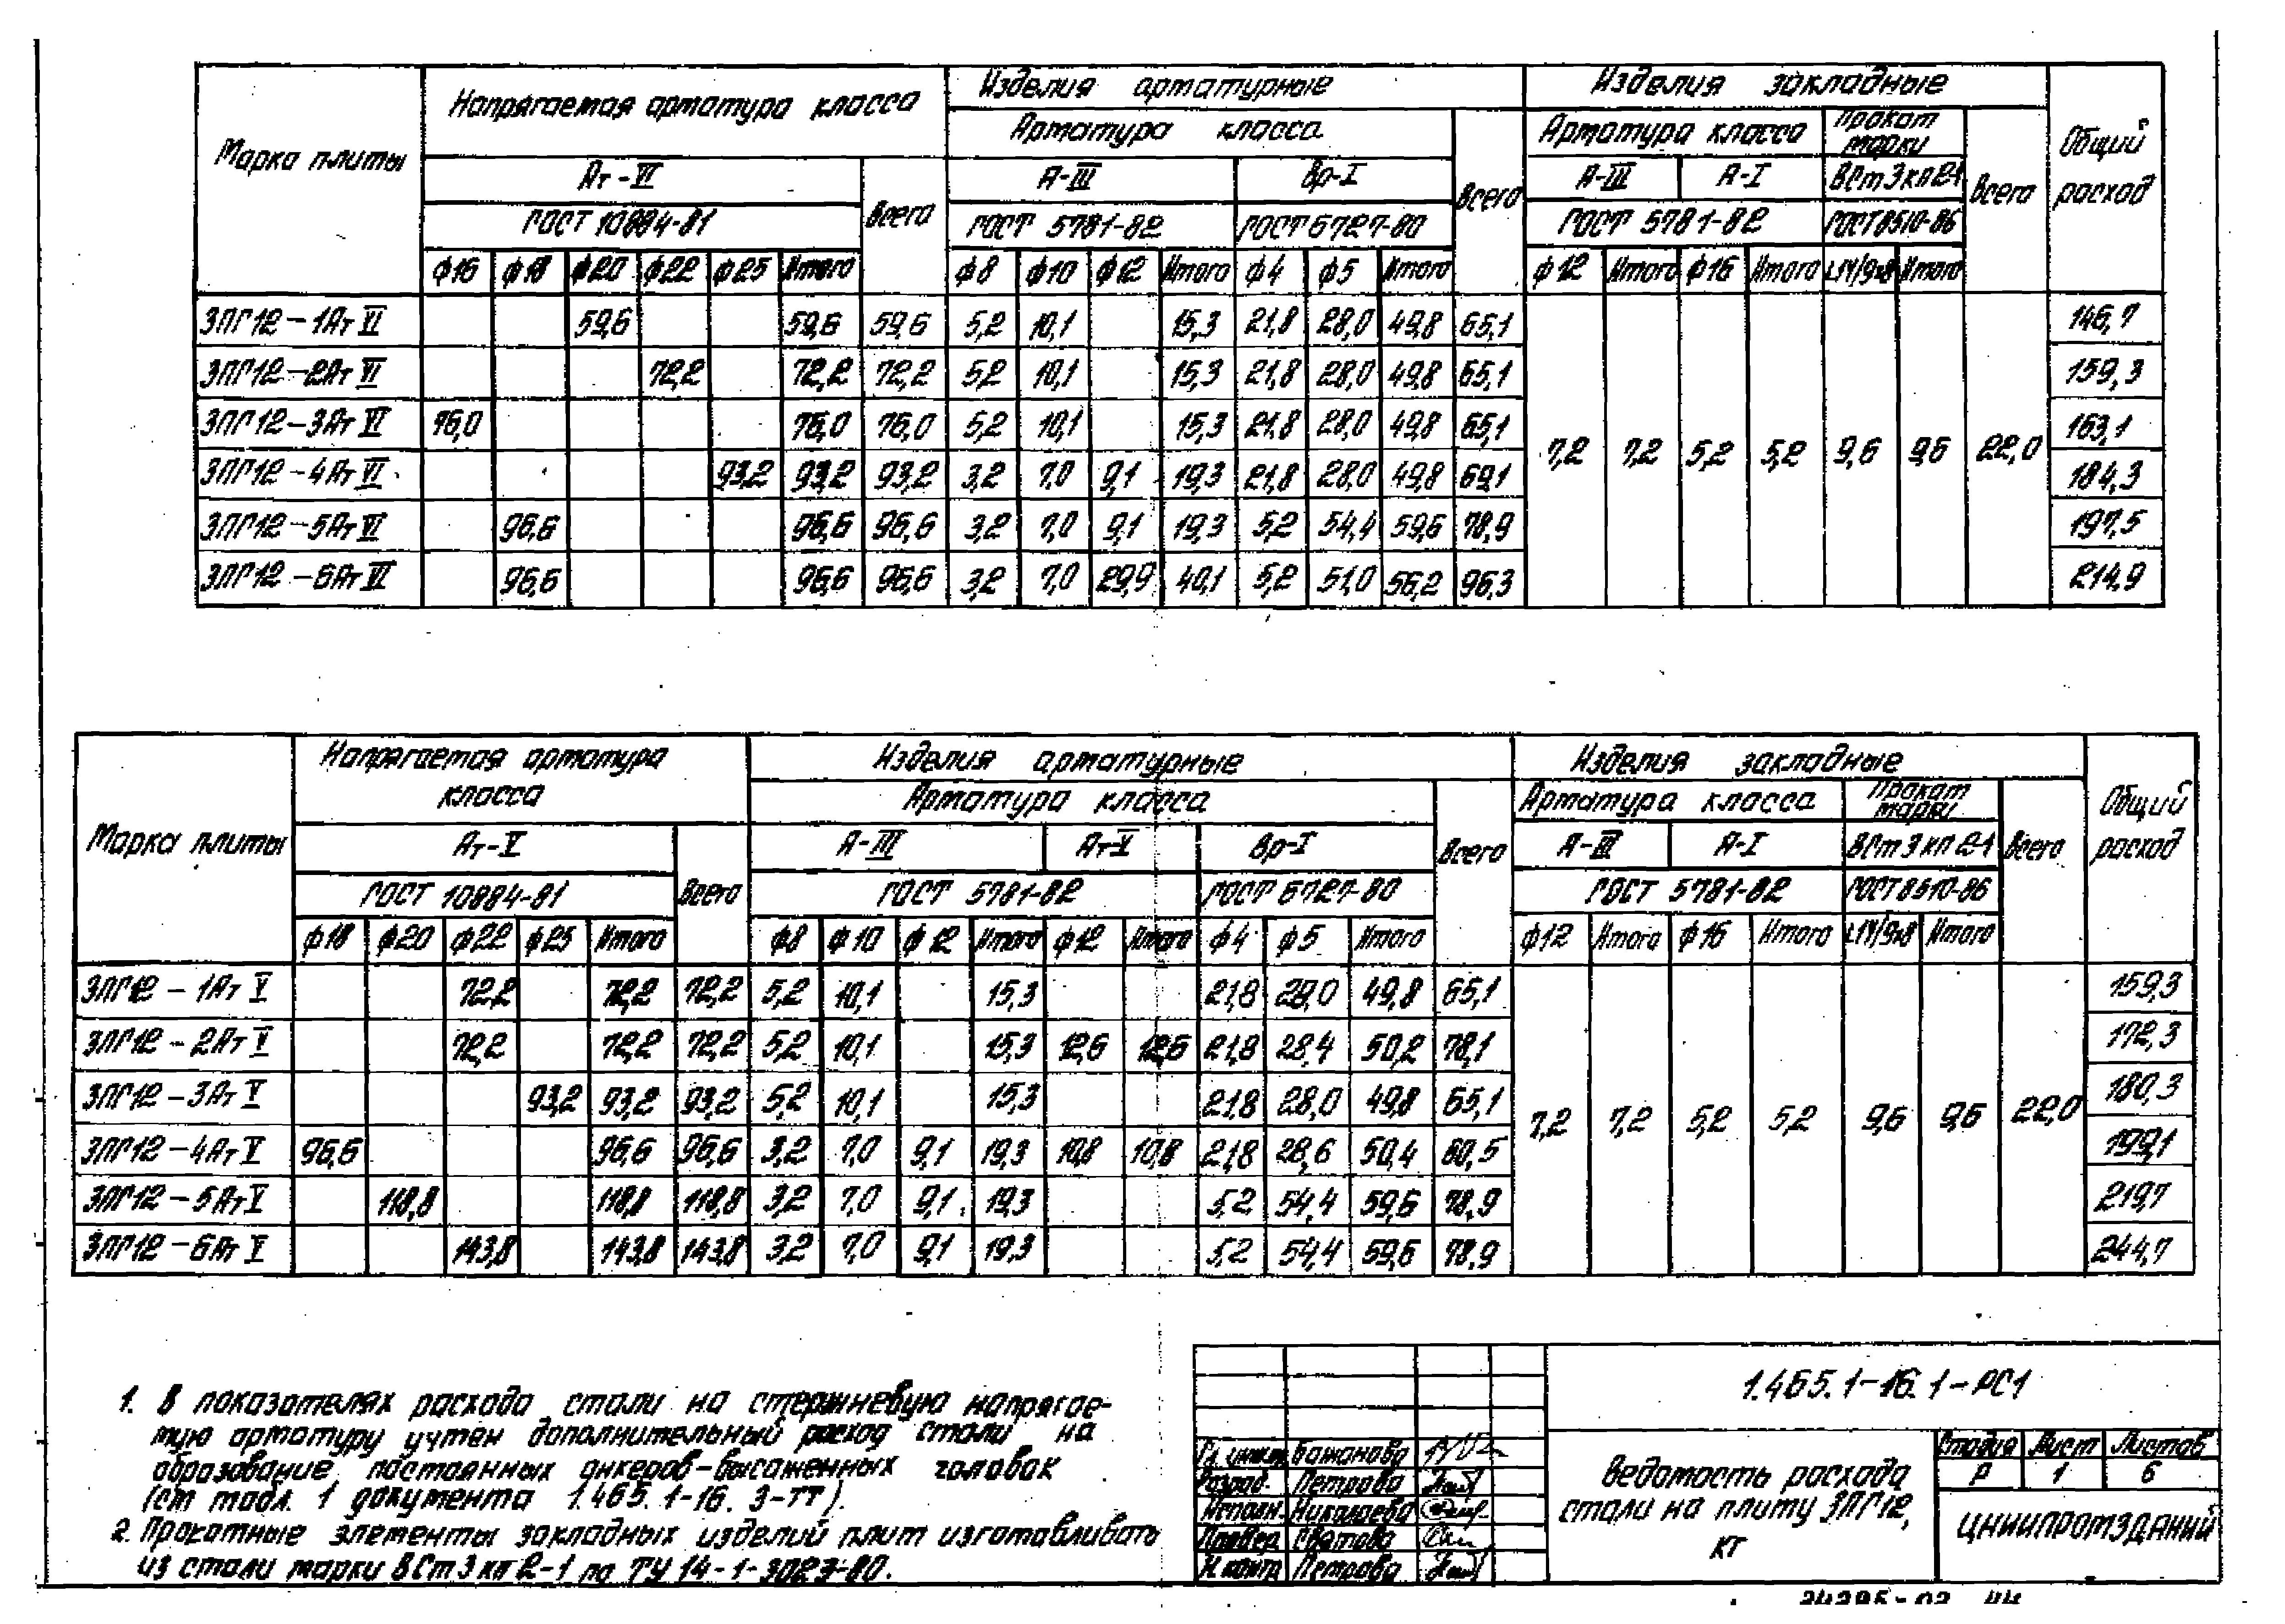 Марка плиты | Напрягаемая арматура класса | Изделия арматурные | Изделия закладные | Общий расход
Арматура класса | Всего | Арматура класса | Прокат марки | Всего
Ат-VI | Всего | А-III | Вр-I | А-III | А-I | ВСт3кп2-1
ГОСТ 10884-81 | ГОСТ 5781-82 | ГОСТ 6727-80 | ГОСТ 5781-82 | ГОСТ 8510-86
ф16 | ф18 | ф20 | ф22 | ф25 | Итого | ф8 | ф10 | ф12 | Итого | ф4 | ф5 | Итого | ф12 | Итого | ф16 | Итого | Итого
3ПГ12-1Ат VI | 59,6 | 59,6 | 59,6 | 5,2 | 10,1 | 15,3 | 21,8 | 28,0 | 49,8 | 65,1 | 146,7
3ПГ12-2Ат VI | 72,2 | 72,2 | 72,2 | 5,2 | 10,1 | 15,3 | 21,8 | 28,0 | 49,8 | 65,1 | 159,3
3ПГ12-3Ат VI | 76,0 | 76,0 | 76,0 | 5,2 | 10,1 | 15,3 | 21,8 | 28,0 | 49,8 | 65,1 | 163,1
7,2 | 7,2 | 5,2 | 5,2 | 9,6 | 9,6 | 22,0
3ПГ12-4Ат VI | 93,2 | 93,2 | 93,2 | 3,2 | 7,0 | 9,1 | 19,3 | 21,8 | 28,0 | 49,8 | 69,1 | 184,3
3ПГ12-5Ат VI | 96,6 | 96,6 | 96,6 | 3,2 | 7,0 | 9,1 | 19,3 | 5,2 | 54,4 | 59,6 | 78,9 | 197,5
3ПГ12-6Ат VI | 96,6 | 96,6 | 96,6 | 3,2 | 7,0 | 29,9 | 40,1 | 5,2 | 51,0 | 56,2 | 96,3 | 214,9
Марка плиты | Напрягаемая арматура класса | Изделия арматурные | Изделия закладные | Общий расход
Арматура класса | Всего | Арматура класса | Прокат марки | Всего
Ат-V | Всего | А-III | Ат-V | Вр-I | А-III | А-I | ВСт3кп2-1
ГОСТ 10884-81 | ГОСТ 5781-82 | ГОСТ 6727-80 | ГОСТ 5781-82 | ГОСТ 8510-86
ф18 | ф20 | ф22 | ф25 | Итого | ф8 | ф10 | ф12 | Итого | ф12 | Итого | ф4 | ф5 | Итого | ф12 | Итого | ф16 | Итого | Итого
3ПГ12-1Ат V | 72,2 | 72,2 | 72,2 | 5,2 | 10,1 | 15,3 | 21,8 | 28,0 | 49,8 | 65,1 | 159,3
3ПГ12-2Ат V | 72,2 | 72,2 | 72,2 | 5,2 | 10,1 | 15,3 | 12,6 | 12,6 | 21,8 | 28,4 | 50,2 | 78,1 | 172,3
3ПГ12-3Ат V | 93,2 | 93,2 | 93,2 | 5,2 | 10,1 | 15,3 | 21,8 | 28,0 | 49,8 | 65,1 | 180,3
7,2 | 7,2 | 5,2 | 5,2 | 9,6 | 9,6 | 22,0
3ПГ12-4Ат V | 96,6 | 96,6 | 96,6 | 3,2 | 7,0 | 9,1 | 19,3 | 10,8 | 10,8 | 21,8 | 28,6 | 50,4 | 80,5 | 199,1
3ПГ12-5Ат V | 118,8 | 118,8 | 118,8 | 3,2 | 7,0 | 9,1 | 19,3 | 5,2 | 54,4 | 59,6 | 78,9 | 219,7
3ПГ12-6Ат V | 143,8 | 143,8 | 143,8 | 3,2 | 7,0 | 9,1 | 19,3 | 5,2 | 54,4 | 59,6 | 78,9 | 244,7
1. В показателях расхода стали на стержневую напрягае-
мую арматуру учтен дополнительный расход стали на
образование постоянных анкеров-высаженных головок
(см табл. 1 документа 1.465.1-16.3-ТТ).
2. Прокатные элементы закладных изделий плит изготавливать
из стали марки ВСт3кп2-1 по ТУ 14-1-3023-80.
1.465.1-16.1-РС1
Бажанова
Разраб. Петрова
Исполн. Николаева
Провер.
Н.контр Петрова
Ведомость расхода
стали на плиту 3ПГ12,
кг
Стадия | Лист | Листов
Р | 1 | 6
ЦНИИПРОМЗДАНИЙ